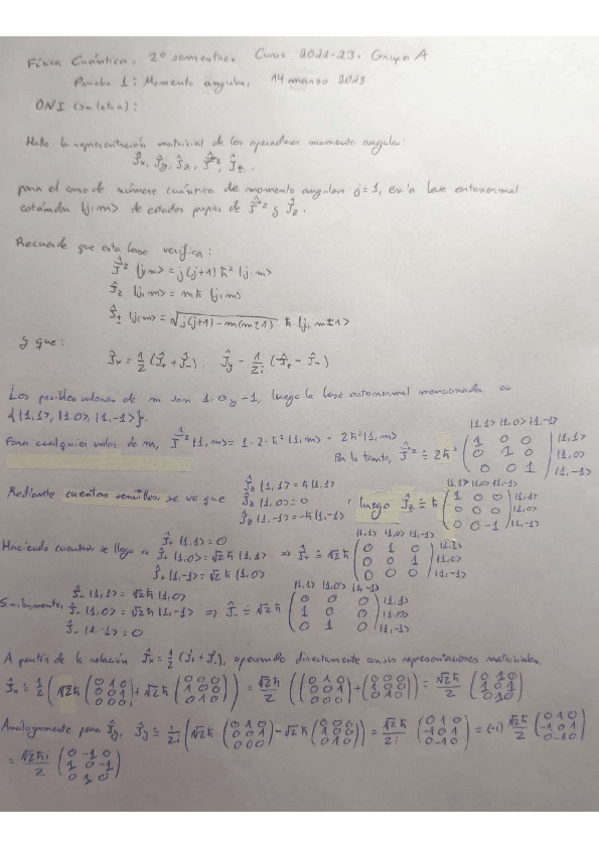 Física Cuántica, 2º semestre. Curso 2022-23. Grupo A
Prueba 1: Momento angular, 14 marzo 2023
DNI (sin letra):
Halle la representación matricial de los operadores momento angular:
Ĵx, Ĵy, Ĵz, Ĵ², Ĵ±,
para el caso de número cuántico de momento angular j=1, en la base ortonormal
estándar |j,m> de estados propios de Ĵ² y Ĵz.
Recuerde que esta base verifica:
Ĵ² |j,m> = j(j+1) ħ² |j,m>
Ĵz |j,m> = mħ |j,m>
Ĵ± |j,m> = √(j(j+1) - m(m±1)) ħ |j, m±1>
y que:
Ĵx = 1/2 (Ĵ+ + Ĵ-), Ĵy = 1/2i (Ĵ+ - Ĵ-)
Los posibles valores de m son 1, 0 y -1, luego la base ortonormal mencionada es
{|1,1>, |1,0>, |1,-1>}.
|1,1> |1,0> |1,-1>
Para cualquier valor de m, Ĵ² |1,m> = 1·2·ħ² |1,m> = 2ħ² |1,m>
Por lo tanto, Ĵ² ≐ 2ħ² (1 0 0; 0 1 0; 0 0 1) |1,1> |1,0> |1,-1>
Mediante cuentas sencillas se ve que Ĵz |1,1> = ħ |1,1>
Ĵz |1,0> = 0
Ĵz |1,-1> = -ħ |1,-1>
, luego Ĵz ≐ ħ (1 0 0; 0 0 0; 0 0 -1) |1,1> |1,0> |1,-1>
Haciendo cuentas se llega a Ĵ+ |1,1> = 0
Ĵ+ |1,0> = √2 ħ |1,1>
Ĵ+ |1,-1> = √2 ħ |1,0>
⇒ Ĵ+ ≐ √2 ħ (0 1 0; 0 0 1; 0 0 0) |1,1> |1,0> |1,-1>
Similarmente, Ĵ- |1,1> = √2 ħ |1,0>
Ĵ- |1,0> = √2 ħ |1,-1>
Ĵ- |1,-1> = 0
⇒ Ĵ- ≐ √2 ħ (0 0 0; 1 0 0; 0 1 0) |1,1> |1,0> |1,-1>
A partir de la relación Ĵx = 1/2 (Ĵ+ + Ĵ-), operando directamente con sus representaciones matriciales,
Ĵx ≐ 1/2 (√2 ħ (0 1 0; 0 0 1; 0 0 0) + √2 ħ (0 0 0; 1 0 0; 0 1 0)) = √2 ħ/2 ((0 1 0; 0 0 1; 0 0 0) + (0 0 0; 1 0 0; 0 1 0)) = √2 ħ/2 (0 1 0; 1 0 1; 0 1 0)
Análogamente para Ĵy, Ĵy ≐ 1/2i (√2 ħ (0 1 0; 0 0 1; 0 0 0) - √2 ħ (0 0 0; 1 0 0; 0 1 0)) = √2 ħ/2i (0 1 0; -1 0 1; 0 -1 0) = (-i) √2 ħ/2 (0 1 0; -1 0 1; 0 -1 0)
= √2 ħi/2 (0 -1 0; 1 0 -1; 0 1 0)